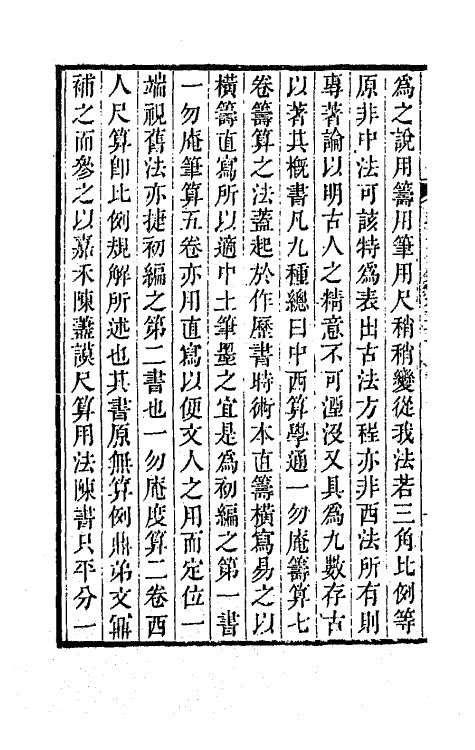 為之說用籌用筆用尺稍稍變從我法若三角比例等
原非中法可該特為表出古法方程亦非西法所有則
專著論以明古人之精意不可湮沒又具為九數存古
以著其概書凡九種總曰中西算學通一勿庵籌算七
卷籌算之法蓋起於作歷書時術本直籌橫寫易之以
橫籌直寫所以適中土筆墨之宜是為初編之第一書
一勿庵筆算五卷亦用直寫以便文人之用而定位一
端視舊法亦捷初編之第二書也一勿庵度算二卷西
人尺算卽比例規解所述也其書原無算例鼎弟文鼐
補之而參之以嘉禾陳藎謨尺算用法陳書只平分一